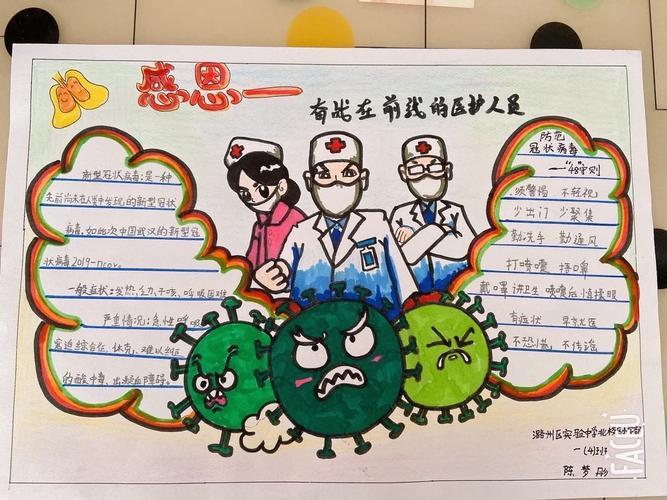 感恩一
奋战在前线的医护人员
新型冠状病毒:是一种
先前尚未在人类中发现的新型冠状
病毒,如此次中国武汉的新型冠
状病毒2019-ncov.
一般症状:发热、乏力、干咳、呼吸困难
严重情况:急性呼吸
窘迫综合征、休克、难以纠正
的酸中毒、出凝血障碍。
防范
冠状病毒
一"48字"守则
须警惕 不轻视
少出门 少聚集
勤洗手 勤通风
打喷嚏 捂口鼻
戴口罩 讲卫生 喷嚏后 慎揉眼
有症状 早就医
不恐慌 不传谣
潞州区实验中学
陈梦彤
FACEU